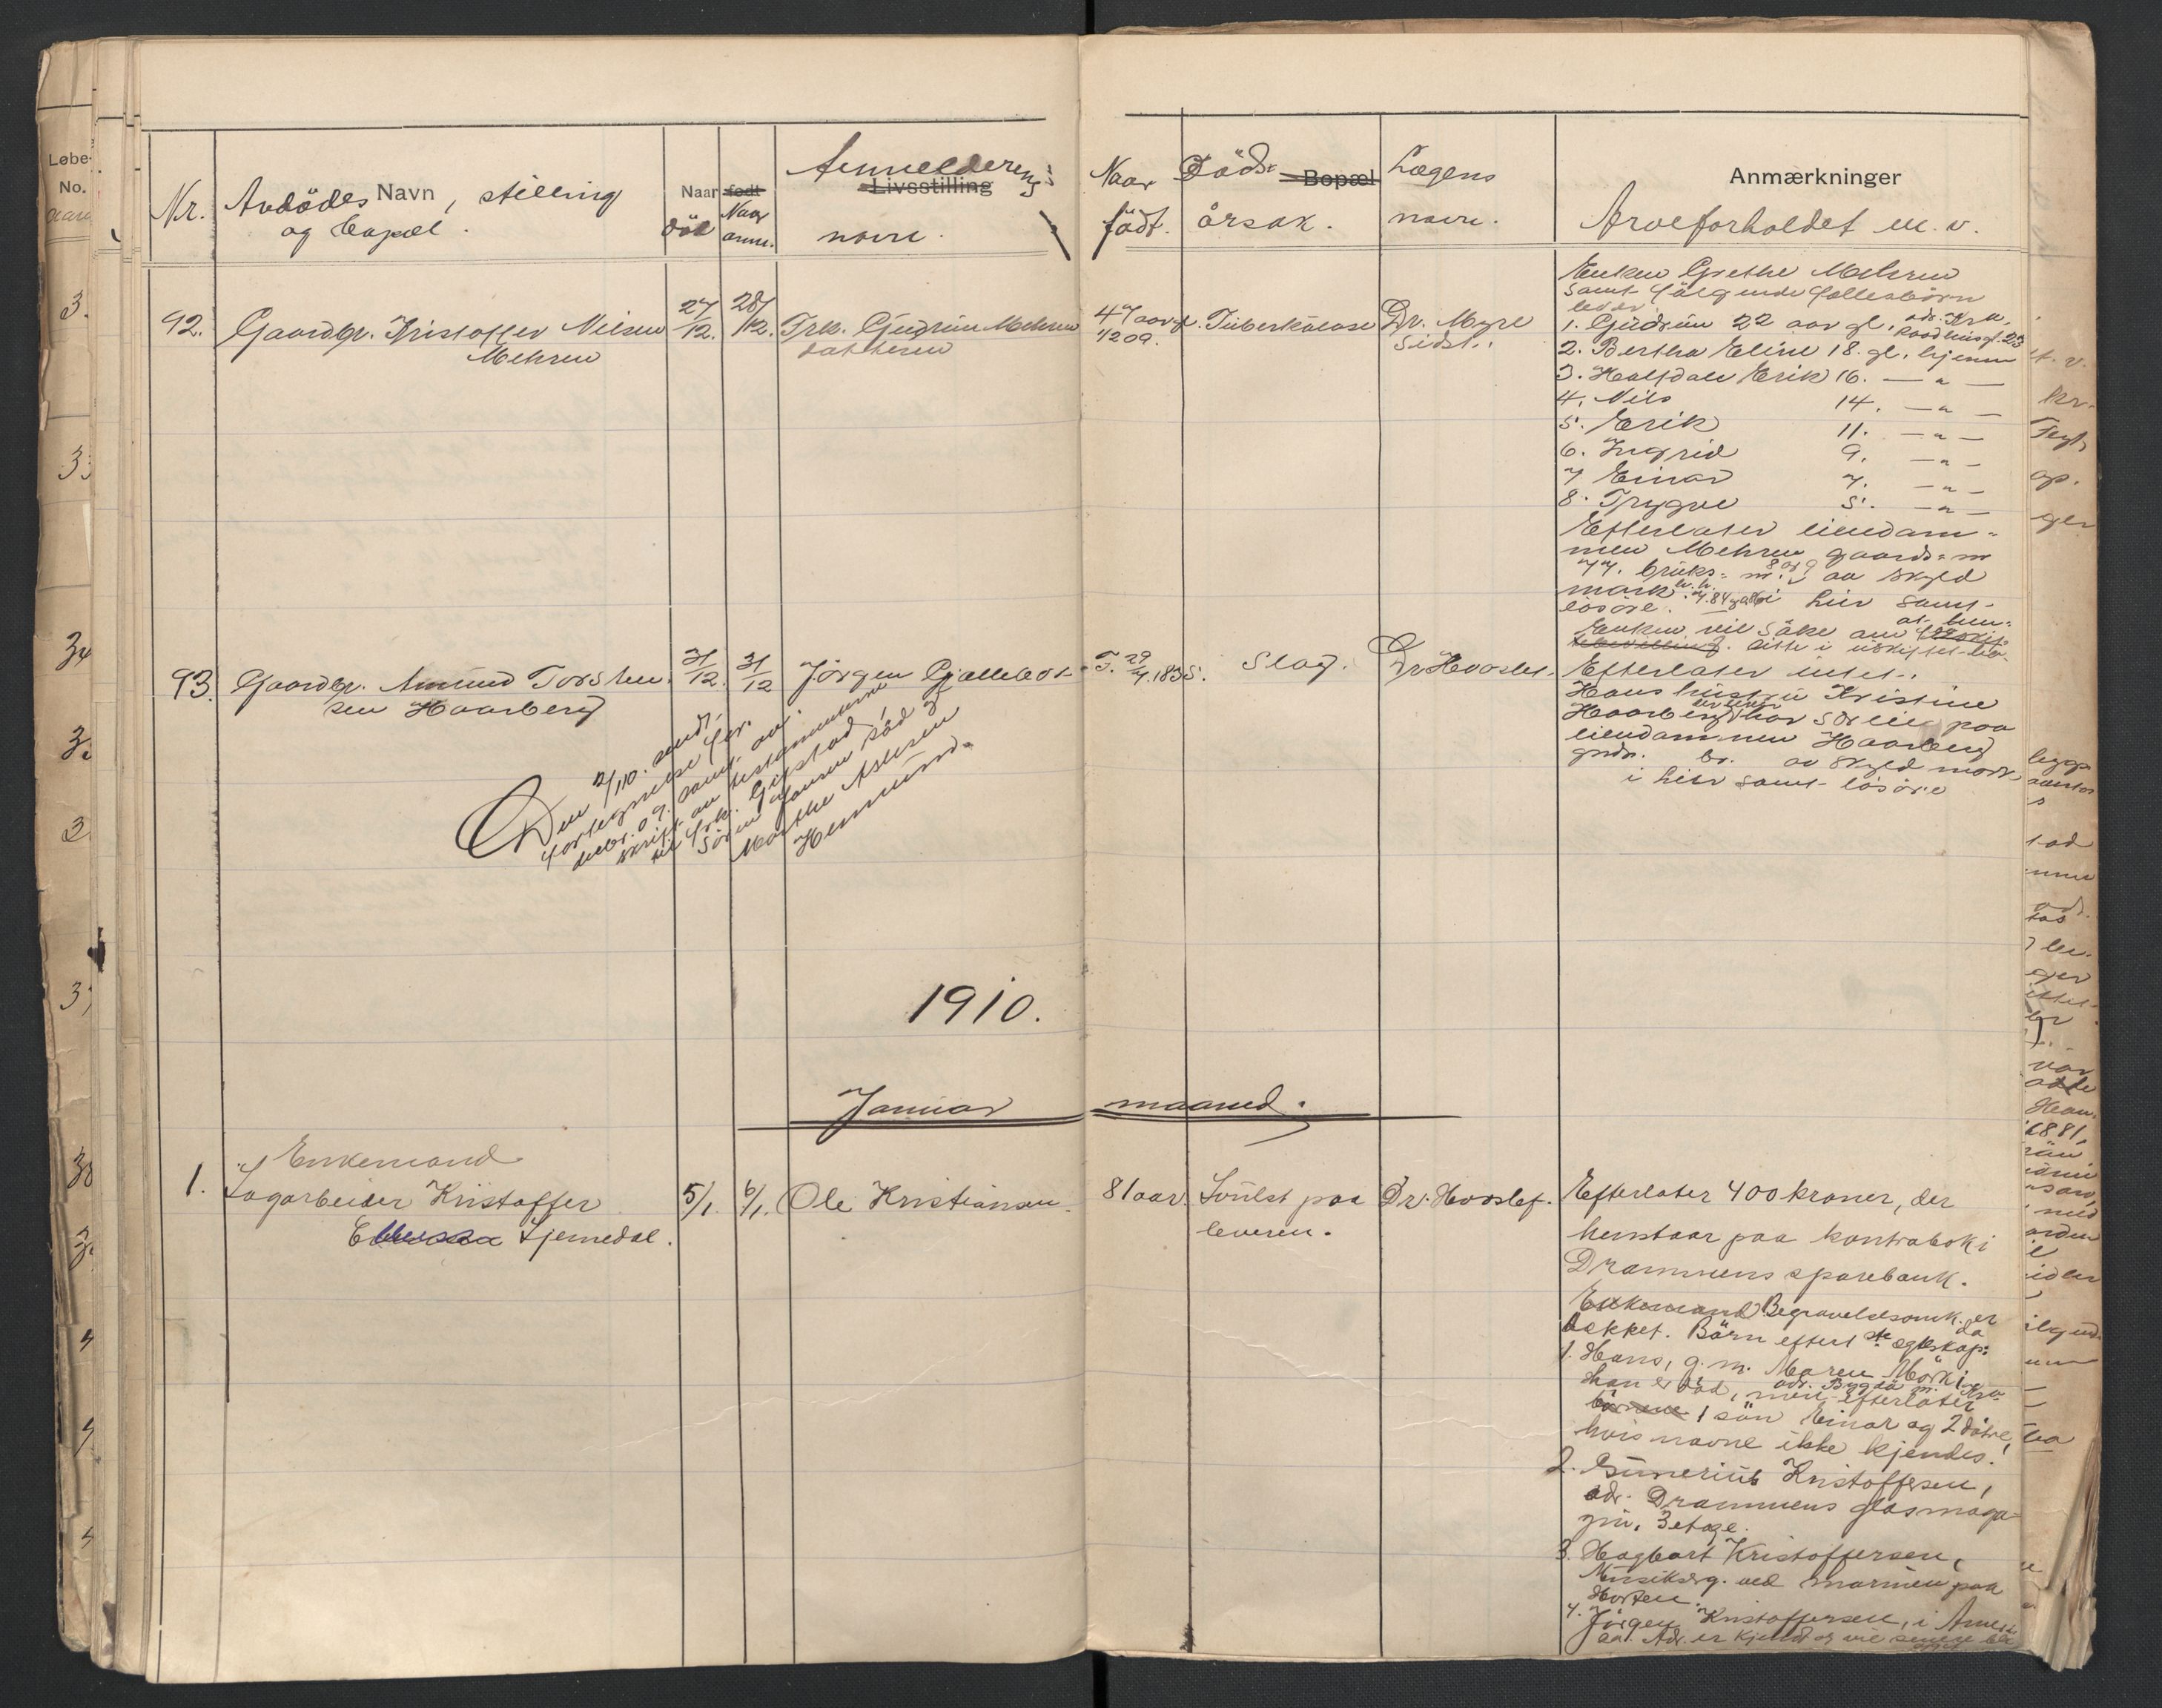 Nr.
Avdödes Navn, stilling
og bopæl.
Naar
död
födt
Naar
anm.
Anmelderens
Livsstilling
navn.
Naar
födt.
Döds- Bopæl
årsak.
Lægens
navn.
Anmærkninger
Arveforholdet m. v.
92. Gaardbr. Kristoffer Nilsen
Mehren
27/12. 28/12.
Frk. Gudrun Mehren
datteren
47 aar gl.
1209.
Tuberkulose
Dr. Myre
sidst.
Enken Grethe Mehren
samt følgende fællesbörn
lever:
1. Gudrun 22 aar gl. adr. Kra,
Raadhusgt. 23
2. Bertha Eline 18. gl. hjemme
3. Halfdan Erik 16. — " —
4. Nils 14. — " —
5. Erik 11. — " —
6. Ingrid 9. — " —
7 Einar 7. — " —
8. Trygve 5. — " —
Efterlater eiendom-
men Mehren gaards- nr
77. bruks- nr. 8 og 9 av skyld
mark i hus samt
lösöre.
Enken vil söke om at hen-
sitte i uskiftet bo.
93. Gaardbr. Amund Torsten-
sen Haarberg
31/12. 31/12
Jörgen Gjallebæk
F. 29/7.1835.
Slag.
Dr. Hovslef.
Efterlater intet.
Hans hustru Kristine
Haarberg er lever har særeie paa
eiendommen Haarberg
gndr. br. av skyld mark
i hus samt lösöre
Den 12/1 10. sendt
fortegnelse for
debr. 09. samt av-
skrift av testamenterne
til frk. Gigstad,
Sören Jansen Rød &
Marthe Aslesen
Hemmund.
1910.
Januar maaned.
1. Enkemand
Sagarbeider Kristoffer
Ellersen Tjernedal.
5/1. 6/1.
Ole Kristiansen.
81 aar.
Svulst paa
leveren.
Dr. Hovslef.
Efterlater 400 kroner, der
henstaar paa kontrabok i
Drammens sparebank.
Enkemand Begravelsesomk. er da
dækket. Börn efter 1ste egteskap:
1. Hans, g. m. Maren Mörk i
adr. Bygdö nr. Kra.
Han er död, men efterlater
börnene 1 sön Einar og 2 dötre,
hvis navne ikke kjendes!
2. Gunerius Kristoffersen,
adr. Drammens glasmaga-
zin, 3 etage.
3. Hagbart Kristoffersen,
Musikerg. ved marinen paa
Horten.
4. Jörgen Kristoffersen, i Ameri-
ka. Adr. er kjendt og vil senere bli
Løbe-
No.